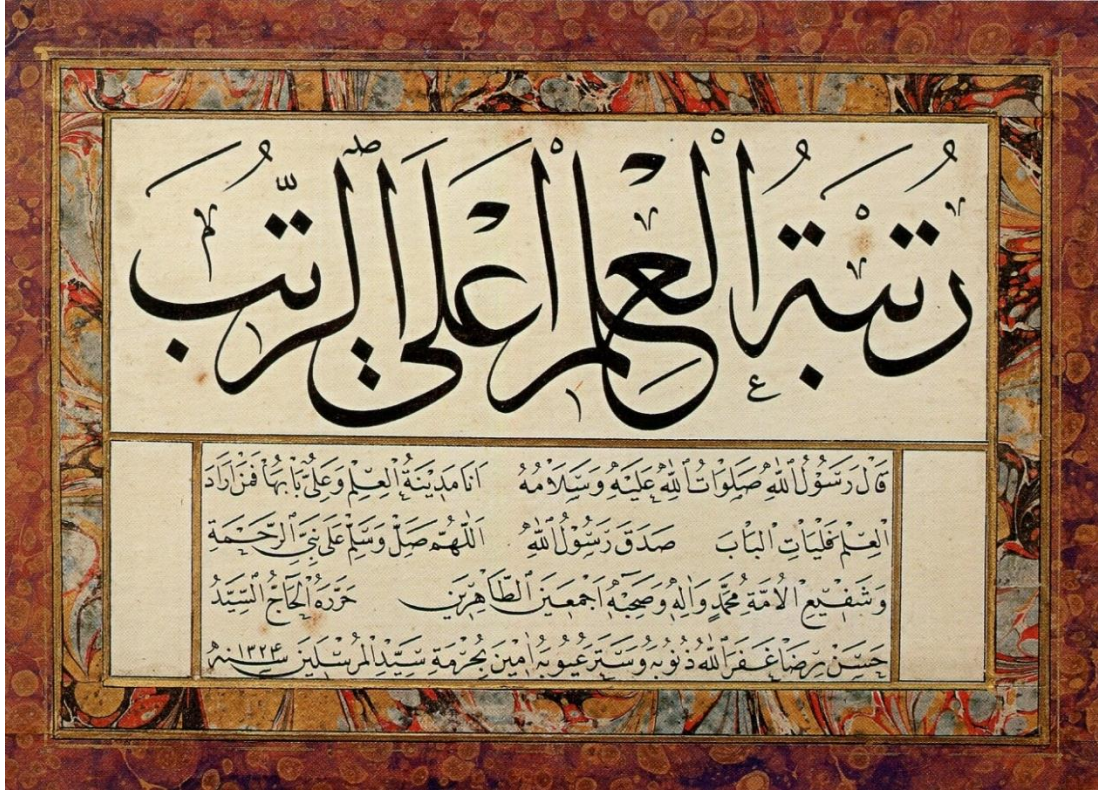 رُتْبَةُ الْعِلْمِ اَعْلَى الرُّتَبِ
قَالَ رَسُولُ اللهِ صَلَوَاتُ اللهِ عَلَيْهِ وَسَلَامُهُ اَنَا مَدِينَةُ الْعِلْمِ وَعَلِىٌّ بَابُهَا فَمَنْ اَرَادَ
الْعِلْمَ فَلْيَاْتِ الْبَابَ صَدَقَ رَسُولُ اللهِ اَللّٰهُمَّ صَلِّ وَسَلِّمْ عَلَى نَبِىِّ الرَّحْمَةِ
وَشَفِيعِ الْاُمَّةِ مُحَمَّدٍ وَاٰلِهِ وَصَحْبِهِ اَجْمَعِينَ الطَّاهِرِينَ حَرَّرَهُ الْحَاجُّ السَّيِّدُ
حَسَنْ رِضَا غَفَرَ اللهُ ذُنُوبَهُ وَسَتَرَ عُيُوبَهُ اٰمِينَ بِحُرْمَةِ سَيِّدِ الْمُرْسَلِينَ سنه ١٣٢٤